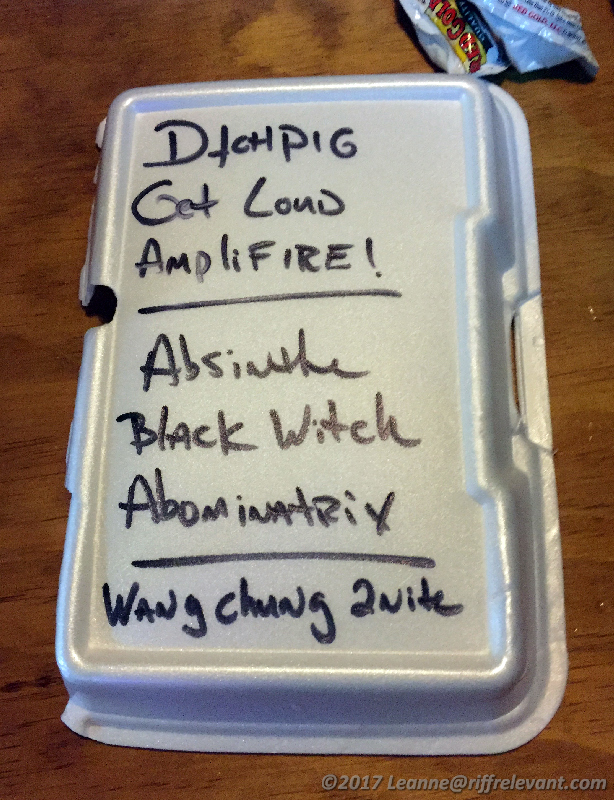 RED GOLD
QUALITY
DItCHPIG
Get Loud
AmpliFIRE!
Absinthe
Black Witch
Abominatrix
Wang Chung 2nite
©2017 Leanne@riffrelevant.com